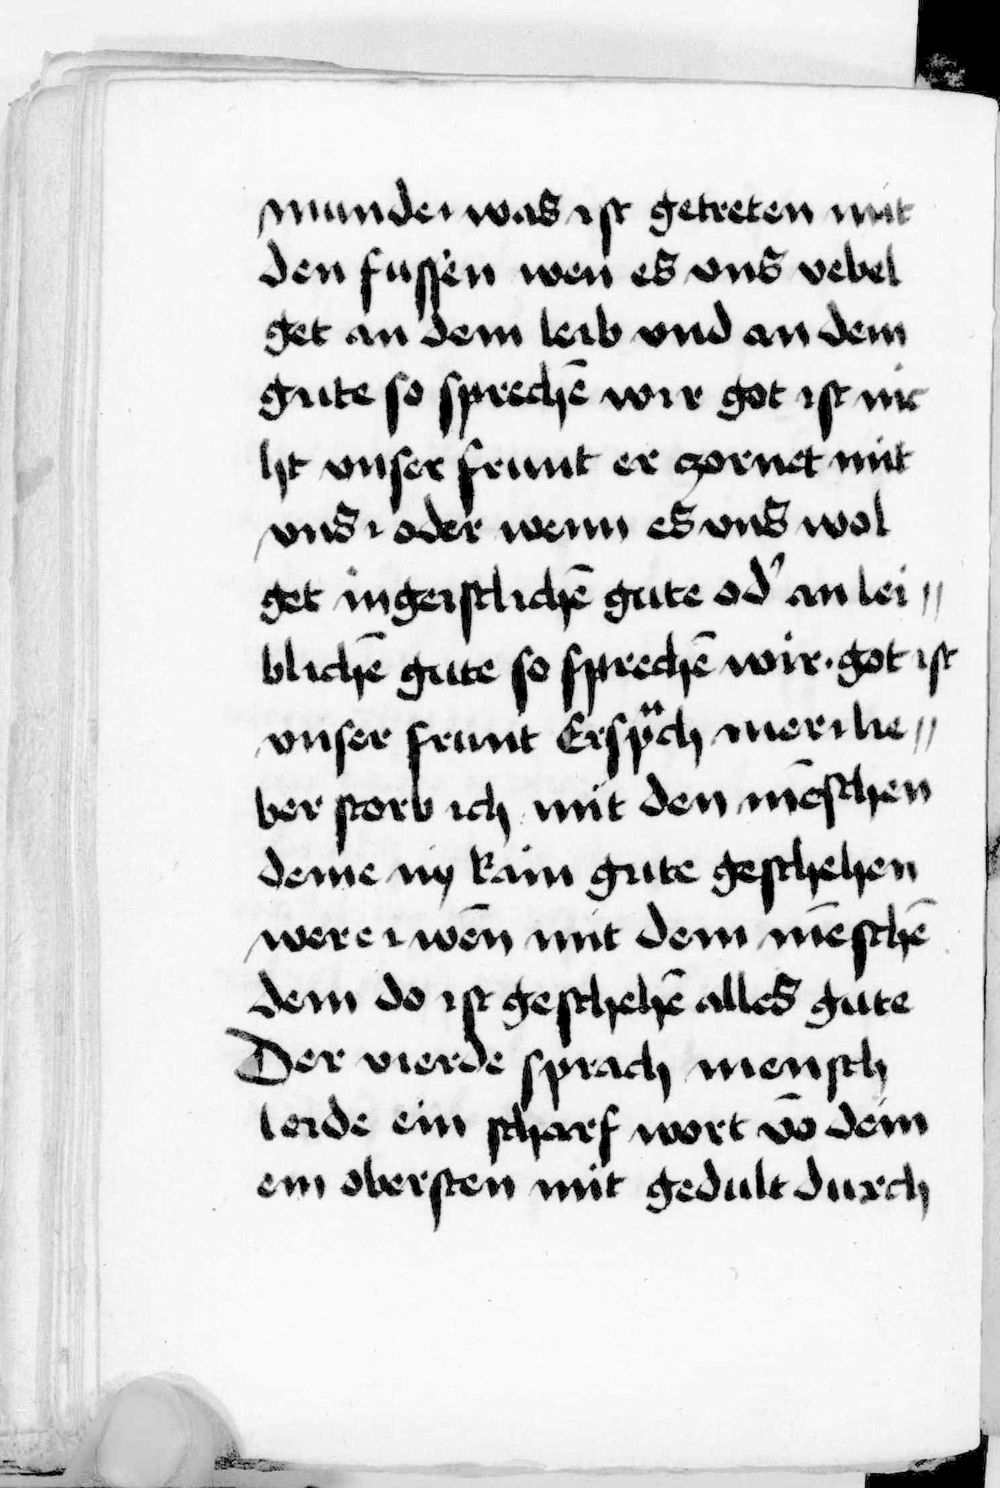 munde· was ist getreten mit
den fussen wen es vns vebel
get an dem leib vnd an dem
gute so sprechē wir got ist nic
ht vnser frunt er zornet mit
vns· oder wenn es vns wol
get in geistlichē gute od' an lei〃
blichē gute so sprechē wir· got ist
vnser frunt Er sp̈ch mer· lie〃
ber storb ich mit den mēschen
deme ny kain gute geschehen
were· wēn mit dem mēschē
dem do ist geschehē alles gute
Der vierde sprach mensch
leide ein scharf wort vō dein
em obersten mit gedult durch